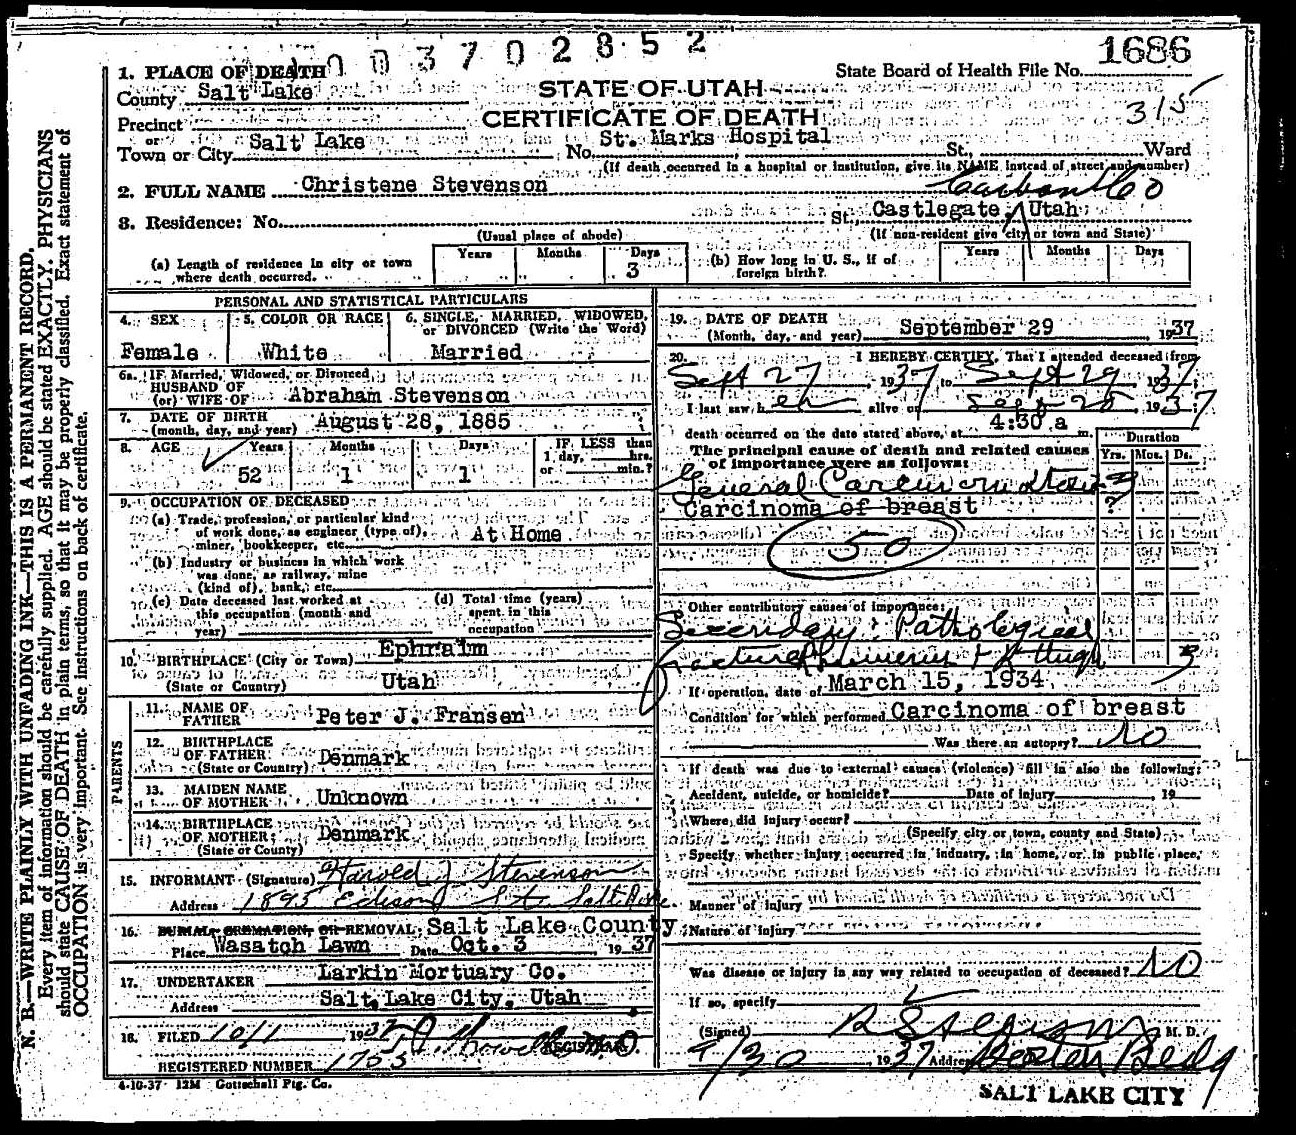 0 0 3 7 0 2 8 5 2
1686
1. PLACE OF DEATH
State Board of Health File No.
County Salt Lake
STATE OF UTAH
315
Precinct
CERTIFICATE OF DEATH
or
Town or City Salt Lake No. St. Marks Hospital St., Ward
(If death occurred in a hospital or institution, give its NAME instead of street and number)
2. FULL NAME Christene Stevenson
Carbon Co
3. Residence: No. St. Castlegate, Utah
(Usual place of abode) (If non-resident give city or town and State)
(a) Length of residence in city or town where death occurred. Years Months Days 3
(b) How long in U. S., if of foreign birth? Years Months Days
PERSONAL AND STATISTICAL PARTICULARS
4. SEX Female
5. COLOR OR RACE White
6. SINGLE, MARRIED, WIDOWED, or DIVORCED (Write the Word) Married
6a. IF Married, Widowed, or Divorced
HUSBAND OF
(or) WIFE OF Abraham Stevenson
7. DATE OF BIRTH
(month, day, and year) August 28, 1885
8. AGE Years 52 Months 1 Days 1 IF LESS than 1 day, hrs. or min.?
9. OCCUPATION OF DECEASED
(a) Trade, profession, or particular kind
of work done, as engineer (type of),
miner, bookkeeper, etc. At Home
(b) Industry or business in which work
was done, as railway, mine
(kind of), bank, etc.
(c) Date deceased last worked at
this occupation (month and
year)
(d) Total time (years)
spent in this
occupation
10. BIRTHPLACE (City or Town) Ephraim
(State or Country) Utah
PARENTS
11. NAME OF
FATHER Peter J. Fransen
12. BIRTHPLACE
OF FATHER:
(State or Country) Denmark
13. MAIDEN NAME
OF MOTHER Unknown
14. BIRTHPLACE
OF MOTHER:
(State or Country) Denmark
15. INFORMANT (Signature) Harold J Stevenson
Address 1895 Edison St. Salt Lake
16. BURIAL, CREMATION, OR REMOVAL: Salt Lake County
Place Wasatch Lawn Date Oct. 3 1937
17. UNDERTAKER Larkin Mortuary Co.
Address Salt Lake City, Utah
18. FILED 10/1 1937
REGISTRAR
REGISTERED NUMBER 1703
4-10-37 12M Gottschall Ptg. Co.
19. DATE OF DEATH
(Month, day, and year) September 29 1937
20. I HEREBY CERTIFY, That I attended deceased from
Sept 27 1937 to Sept 29, 1937
I last saw her alive on Sept 28 1937
death occurred on the date stated above, at 4:30 a m.
The principal cause of death and related causes
of importance were as follows:
Duration
Yrs. Mos. Ds.
General Carcinomatosis 3
Carcinoma of breast ?
50
Other contributory causes of importance:
Secondary: Pathological
fracture humerus + thigh 3
If operation, date of March 15, 1934
Condition for which performed Carcinoma of breast
Was there an autopsy? No
If death was due to external causes (violence) fill in also the following:
Accident, suicide, or homicide? Date of injury 19
Where did injury occur?
(Specify city or town, county and State)
Specify whether injury occurred in industry, in home, or in public place,
Manner of injury
Nature of injury
Was disease or injury in any way related to occupation of deceased? No
If so, specify
(Signed) M. D.
9/30 1937 Address Boston Bldg
SALT LAKE CITY
N. B.—WRITE PLAINLY WITH UNFADING INK—THIS IS A PERMANENT RECORD.
Every item of information should be carefully supplied. AGE should be stated EXACTLY. PHYSICIANS
should state CAUSE OF DEATH in plain terms, so that it may be properly classified. Exact statement of
OCCUPATION is very important. See instructions on back of certificate.